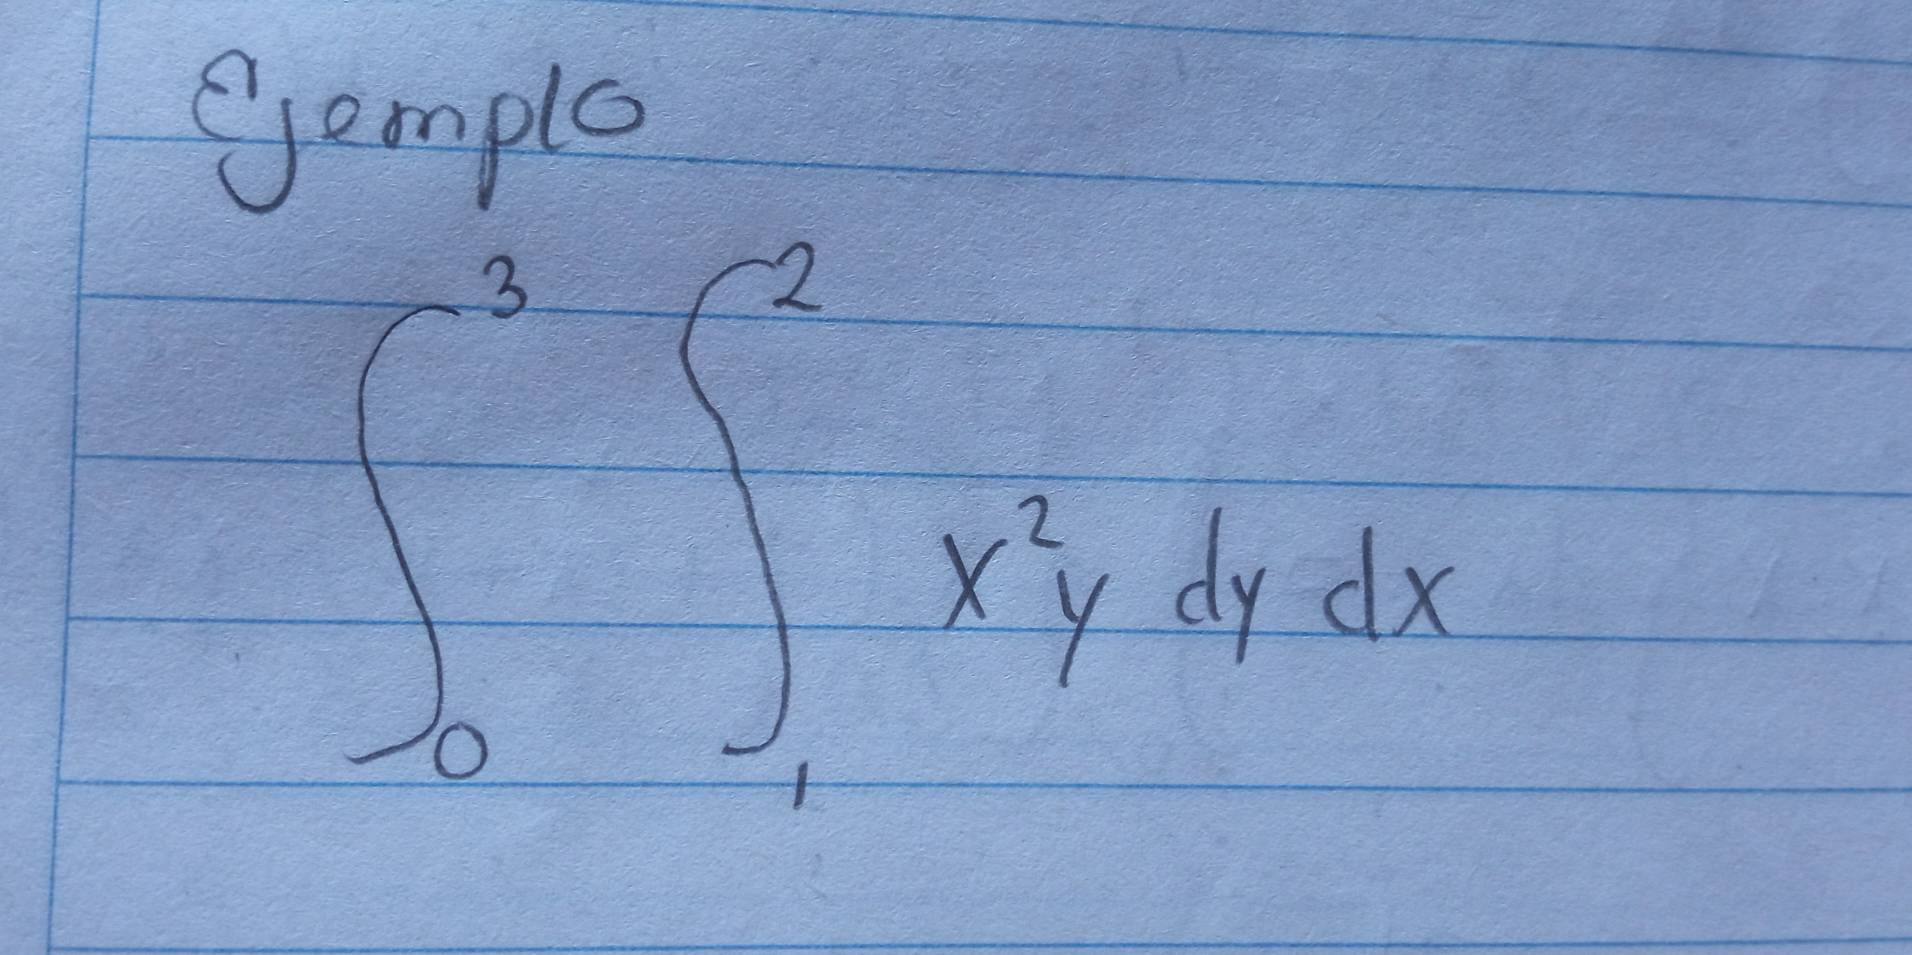 Ejemplo
∫₀³ ∫₁² x²y dy dx